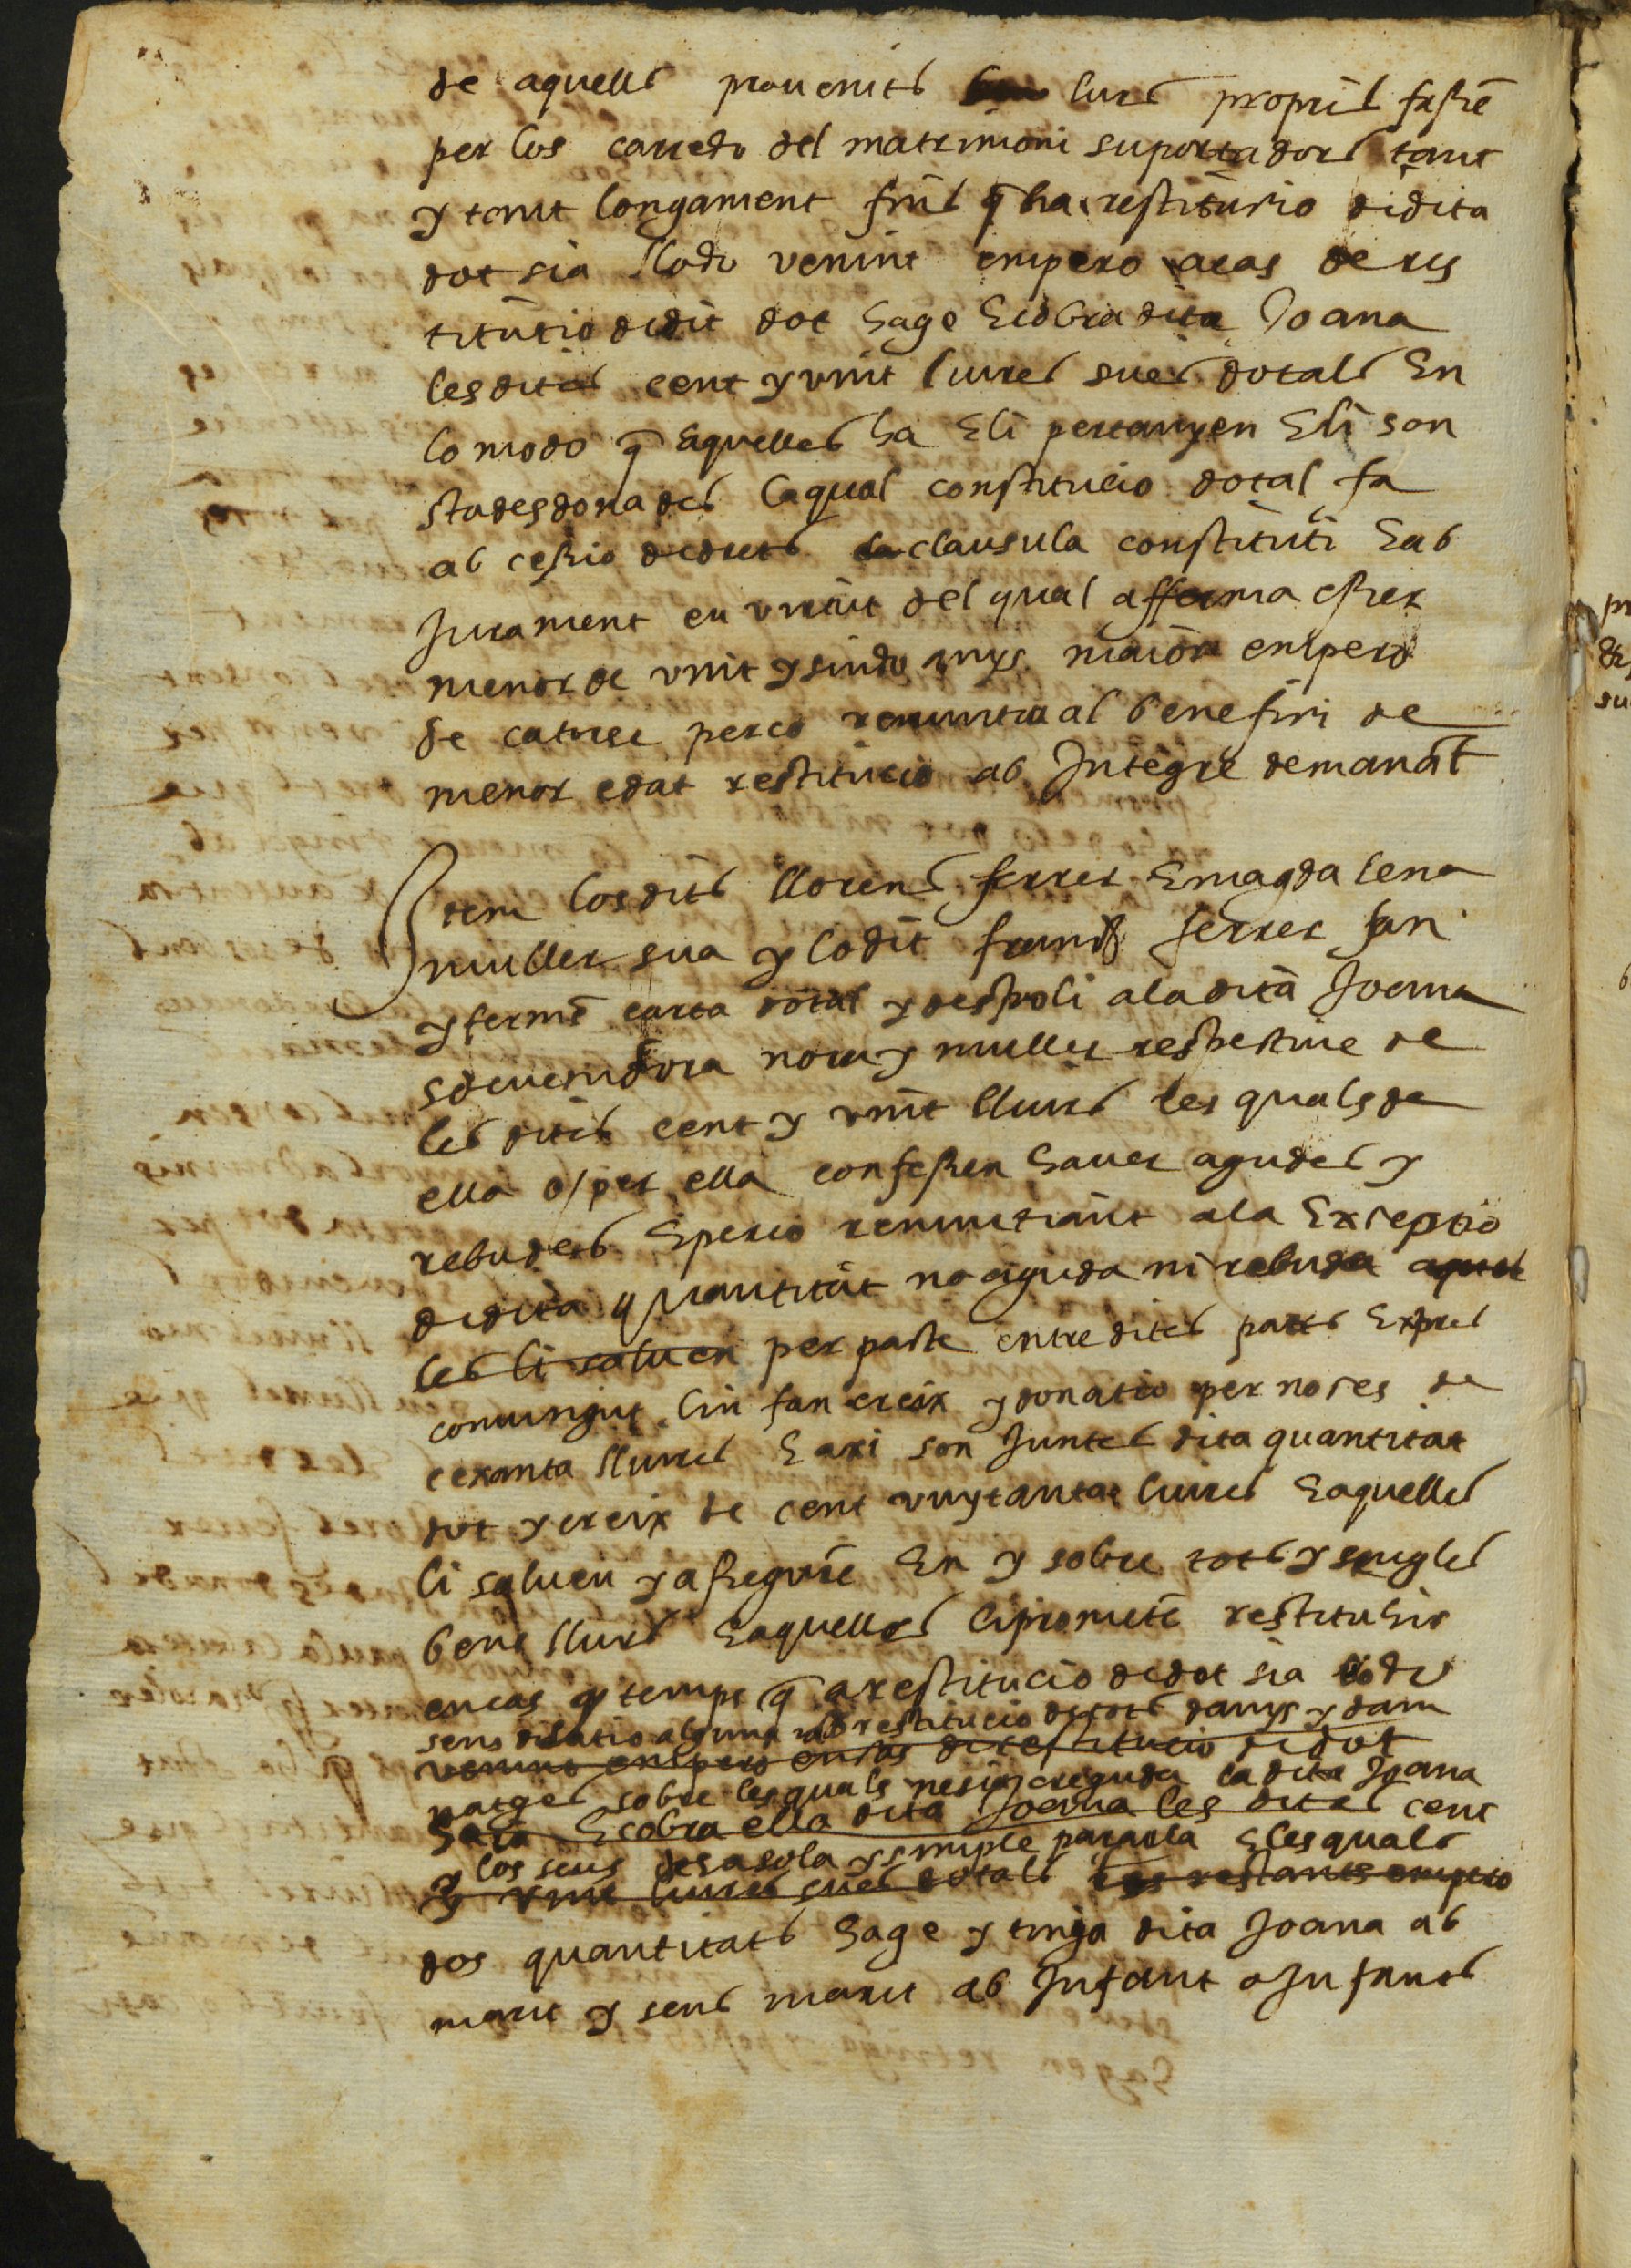 de aquells provenits lurs propris fassē
per los carrechs del matrimoni suportadors tant
y tant longament fins q̄ ha restitutio d dita
dot sia lloch venint empero acas de res
titutio d dit dot hage E cobra dita Joana
les dites cent y vint liures sues dotals En
lo modo q̄ aquelles ha Eli pertanyen Eli son
stades donades laqual constitucio dotal fa
ab cessio d drets clausula constituti Eab
Jurament en virtut del qual afferma esser
menor de vint y sinch anys maior empero
de catorse perço renuntia al benefici de
menor edat restitucio ab Integre demanāt
Item los dits llorens ferrer E magdalena
muller sua y lo dit ferrer fan
y fermē carta dotal y despoli ala dita Joana
sdevenidora nora y muller respective de
les dites cent y vint lliures les quals de
ella o/per ella confessen haver agudes y
rebudes Eperço renuntiant ala Exceptio
d dita quantitat no aguda ni rebuda aquel
les li salven per pacte entre dites parts Expres
convingut lin fan creix y donatio per noces de
cexanta lliures E axi son Juntes dita quantitat
dot y creix de cent vuytanta liures Eaquelles
li salven y assegurē En y sobre tots y sengles
bens llurs Eaquelles li prometē restituhir
en cas y temps q̄ a restitucio de dot sia lloch
sens dilatio alguna ab restitucio de tots danys y dam
venint empero en cas de restitucio d dot
natges sobre les quals nesia creguda la dita Joana
haia E cobra ella dita Joana les dites cent
y los seus de sa sola y simple paraula Elesquals
y vint liures sues dotals les restants empero
dos quantitats hage y tinga dita Joana ab
marit y sens marit ab Infant o Infants